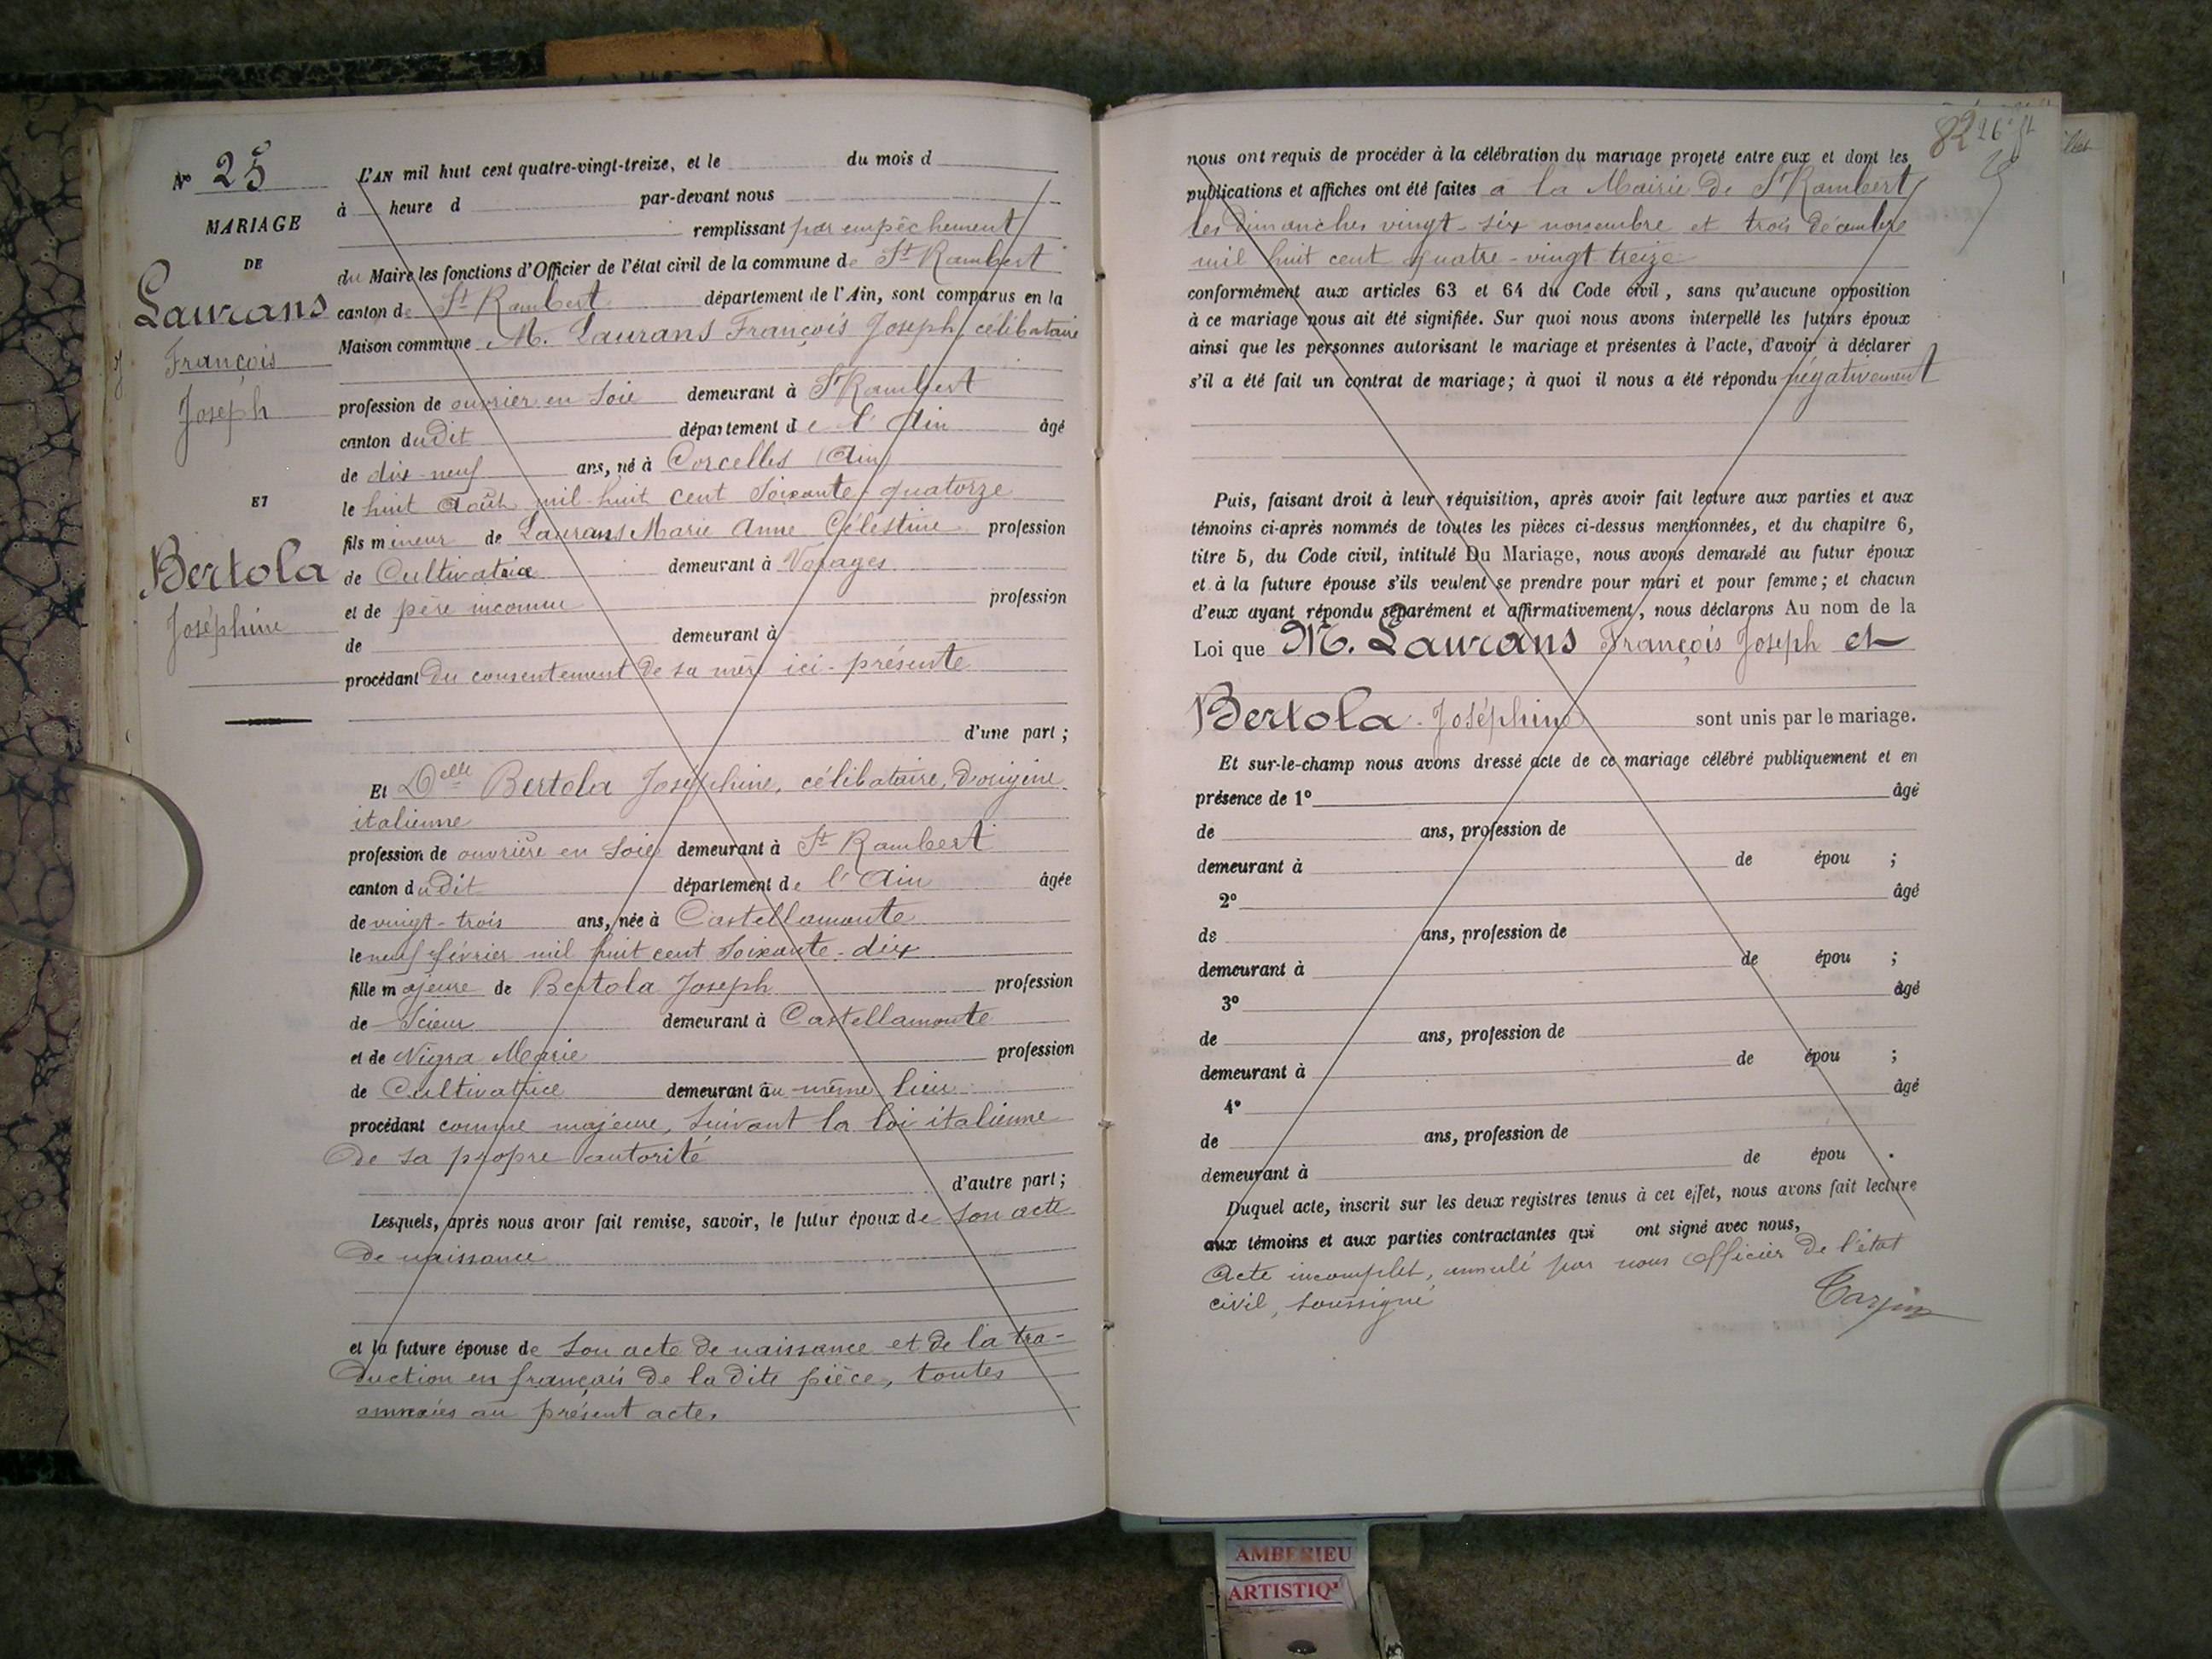 N° 25
MARIAGE
DE
Laurans
François
Joseph
ET
Bertola
Joséphine
L'AN mil huit cent quatre-vingt-treize, et le du mois d
à heure d par-devant nous
remplissant par empêchement
du Maire les fonctions d'Officier de l'état civil de la commune de St Rambert
canton de St Rambert département de l'Ain, sont comparus en la
Maison commune M. Laurans François Joseph, célibataire
profession de ouvrier en soie demeurant à St Rambert
canton dudit département de l'Ain âgé
de dix-neuf ans, né à Corcelles (Ain)
le huit Août mil huit cent soixante-quatorze
fils mineur de Laurans Marie Anne Célestine profession
de Cultivatrice demeurant à
et de père inconnu profession
de demeurant à
procédant du consentement de sa mère ici-présente
d'une part ;
Et Delle Bertola Joséphine, célibataire, d'origine
italienne
profession de ouvrière en soie demeurant à St Rambert
canton dudit département de l'Ain âgée
de vingt-trois ans, née à Castellamonte
le neuf février mil huit cent soixante-dix
fille majeure de Bertola Joseph profession
de Scieur demeurant à Castellamonte
et de Nigra Marie profession
de Cultivatrice demeurant au même lieu
procédant comme majeure, suivant la loi italienne
de sa propre autorité
d'autre part ;
Lesquels, après nous avoir fait remise, savoir, le futur époux de son acte
de naissance
et la future épouse de son acte de naissance et de la tra-
duction en français de la dite pièce, toutes
annexées au présent acte,
82 26e
nous ont requis de procéder à la célébration du mariage projeté entre eux et dont les
publications et affiches ont été faites à la Mairie de St Rambert
les dimanches vingt-six novembre et trois décembre
mil huit cent quatre-vingt treize
conformément aux articles 63 et 64 du Code civil, sans qu'aucune opposition
à ce mariage nous ait été signifiée. Sur quoi nous avons interpellé les futurs époux
ainsi que les personnes autorisant le mariage et présentes à l'acte, d'avoir à déclarer
s'il a été fait un contrat de mariage; à quoi il nous a été répondu négativement
Puis, faisant droit à leur réquisition, après avoir fait lecture aux parties et aux
témoins ci-après nommés de toutes les pièces ci-dessus mentionnées, et du chapitre 6,
titre 5, du Code civil, intitulé Du Mariage, nous avons demandé au futur époux
et à la future épouse s'ils veulent se prendre pour mari et pour femme; et chacun
d'eux ayant répondu séparément et affirmativement, nous déclarons Au nom de la
Loi que M. Laurans François Joseph et
Bertola Joséphine sont unis par le mariage.
Et sur-le-champ nous avons dressé acte de ce mariage célébré publiquement et en
présence de 1° âgé
de ans, profession de
demeurant à de épou ;
2° âgé
de ans, profession de
demeurant à de épou ;
3° âgé
de ans, profession de
demeurant à de épou ;
4° âgé
de ans, profession de
demeurant à de épou .
Duquel acte, inscrit sur les deux registres tenus à cet effet, nous avons fait lecture
aux témoins et aux parties contractantes qui ont signé avec nous,
Acte incomplet, annulé par nous Officier de l'état
civil, soussigné
AMBERIEU
ARTISTIQ'